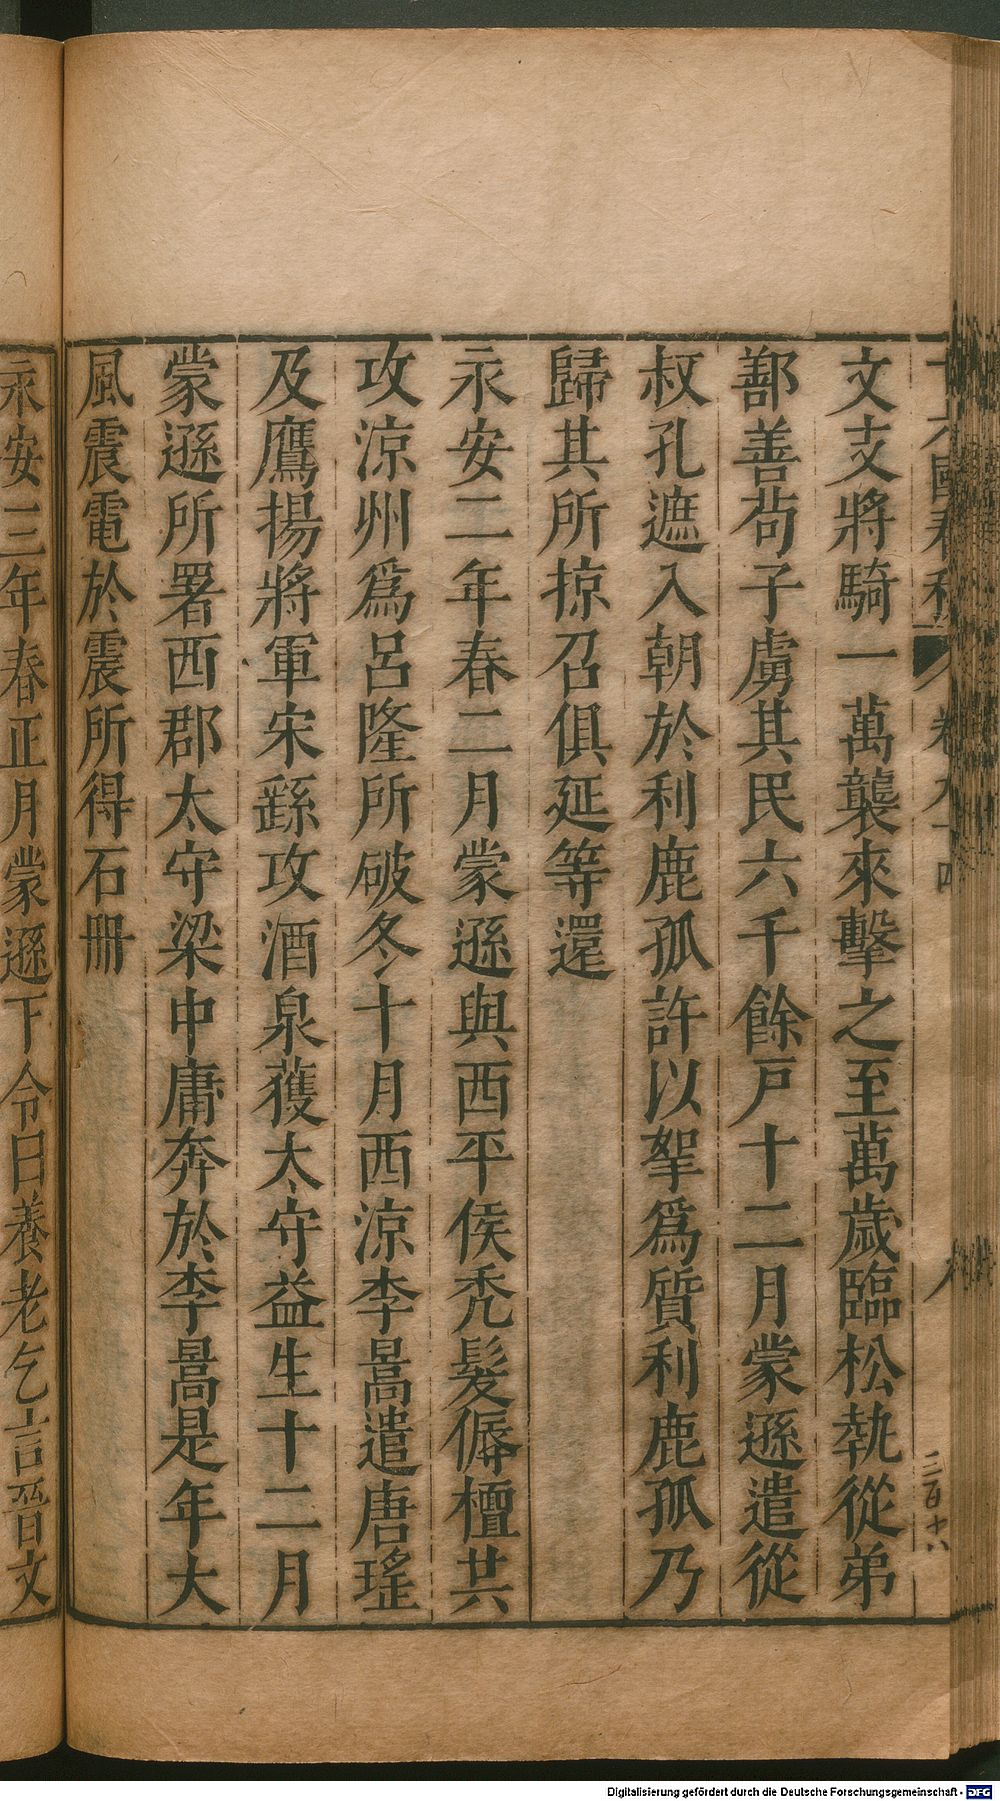 十六國春秋 卷九十四 八 三百十八
文支將騎一萬襲來擊之至萬歲臨松執從弟
鄯善苟子虜其民六千餘戸十二月蒙遜遣從
叔孔遮入朝於利鹿孤許以挐爲質利鹿孤乃
歸其所掠召俱延等還
永安二年春二月蒙遜與西平侯秃髮傉檀共
攻涼州爲呂隆所破冬十月西涼李暠遣唐瑤
及鷹揚將軍宋繇攻酒泉獲太守益生十二月
蒙遜所署西郡太守梁中庸奔於李暠是年大
風震電於震所得石冊
永安三年春正月蒙遜下令曰養老乞言晉文
Digitalisierung gefördert durch die Deutsche Forschungsgemeinschaft - DFG